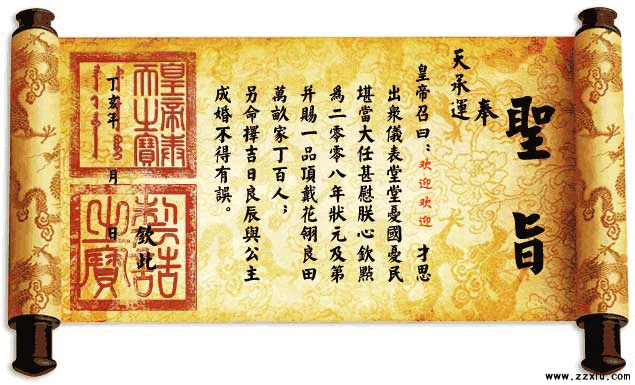 聖旨
奉
天承運
皇帝召曰：欢迎欢迎 才思
出衆儀表堂堂憂國憂民
堪當大任甚慰朕心欽點
爲二零零八年狀元及第
并賜一品頂戴花翎良田
萬畝家丁百人；
另命擇吉日良辰與公主
成婚不得有誤。
欽此
丁亥年 月 日
皇帝奉天之寶
制誥之寶
www.zzxiu.com